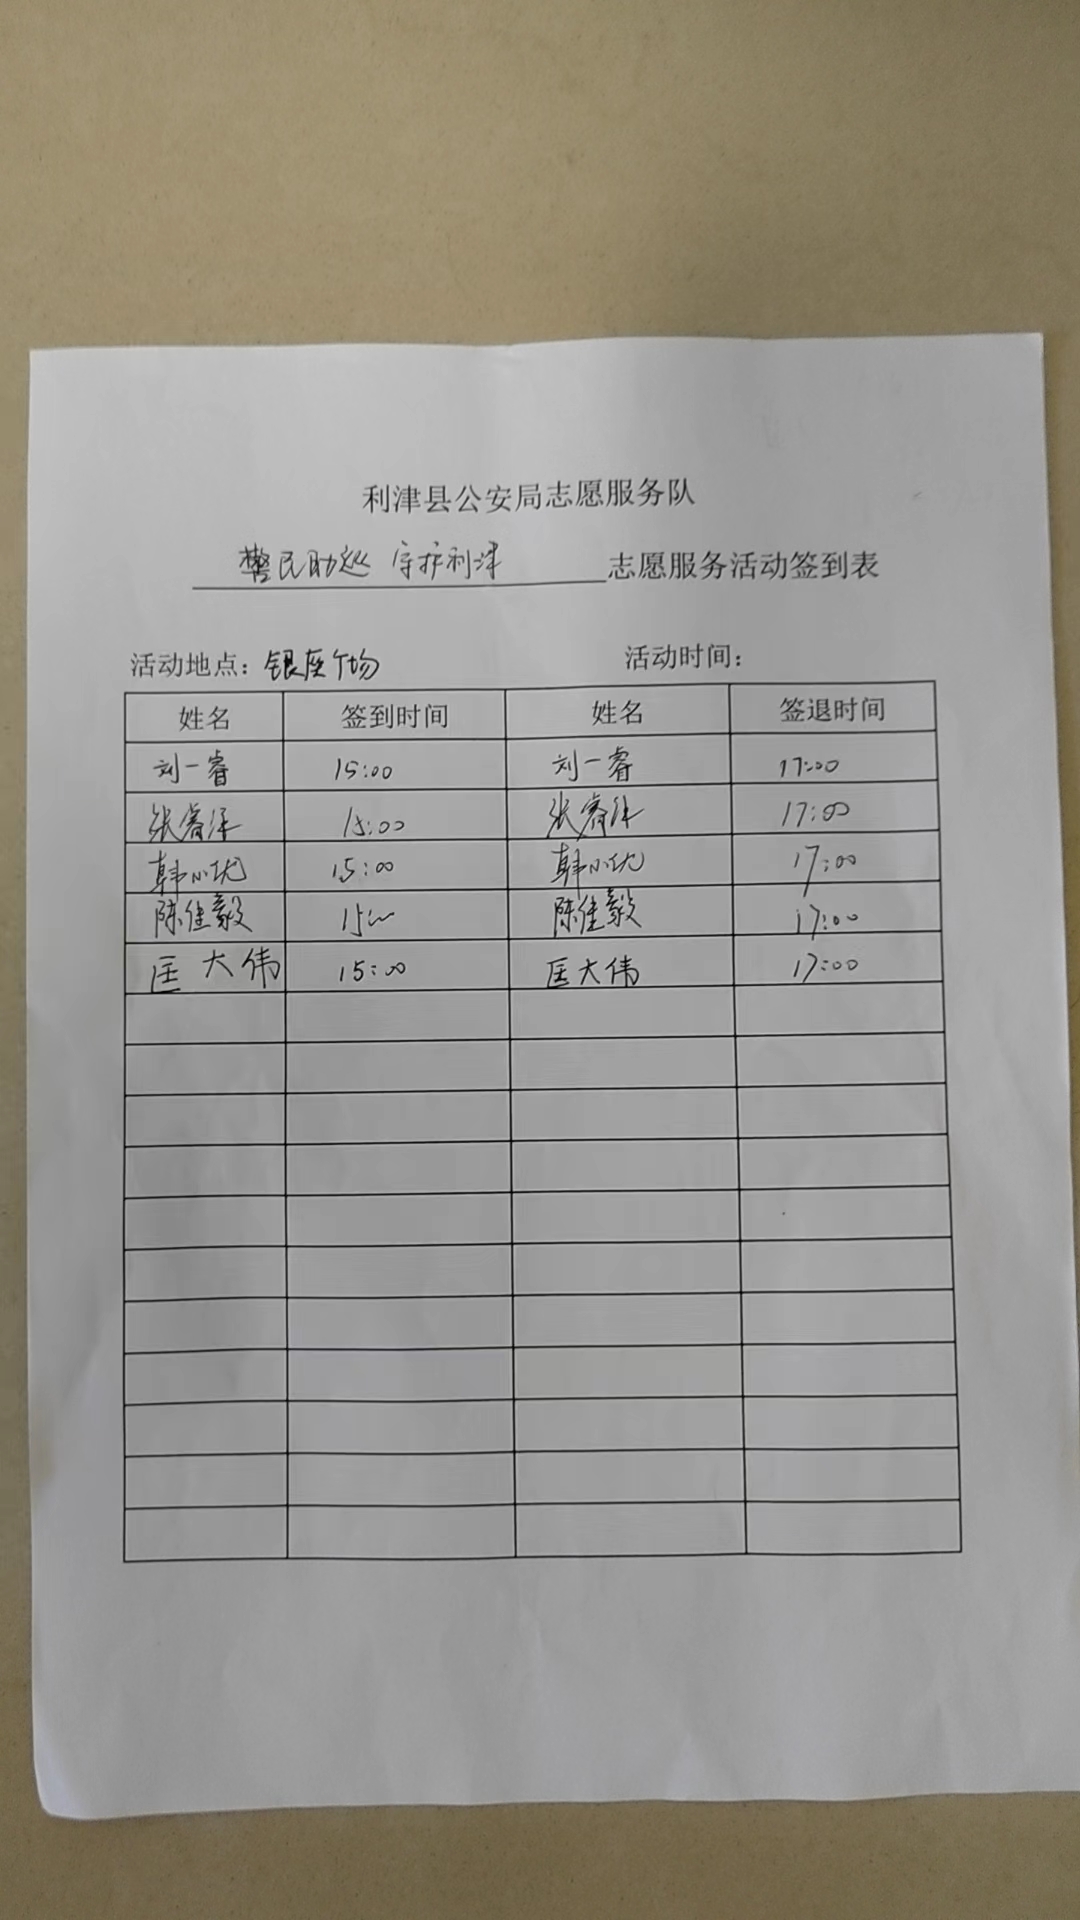 利津县公安局志愿服务队
警民助巡 守护利津 志愿服务活动签到表
活动地点：银座广场 活动时间：
姓名 签到时间 姓名 签退时间
刘一睿 15:00 刘一睿 17:00
张睿泽 15:00 张睿泽 17:00
韩小优 15:00 韩小优 17:00
陈佳毅 15:00 陈佳毅 17:00
匡大伟 15:00 匡大伟 17:00